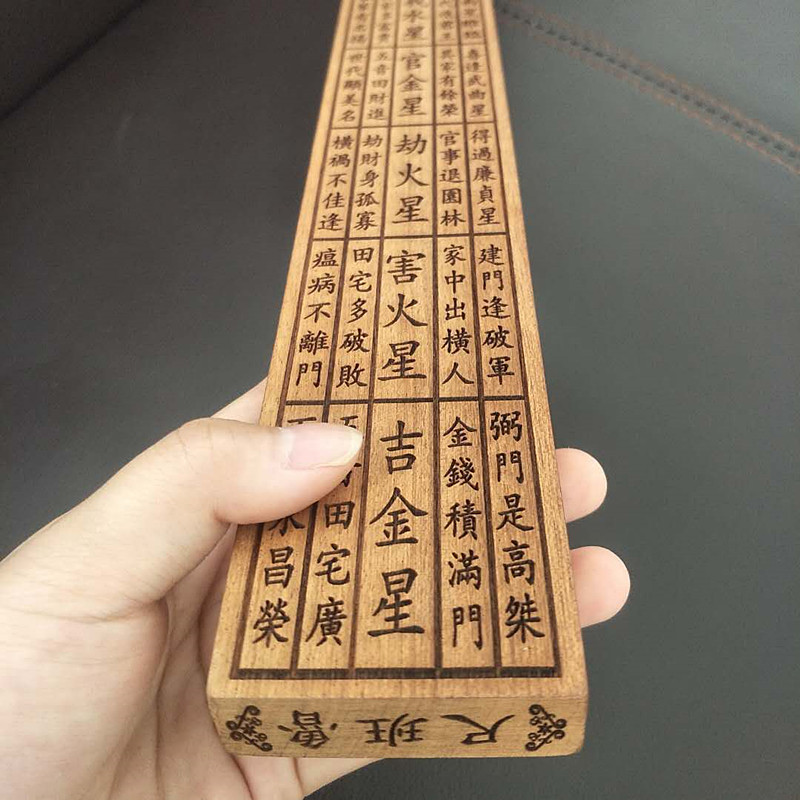 水星
武曲星
家有餘榮
官金星
五音田財進
世代顯美名
得過廉貞星
官事退園林
劫火星
劫財身孤寡
橫禍不佳逢
建門逢破軍
家中出橫人
害火星
田宅多破敗
瘟病不離門
弼門是高桀
金錢積滿門
吉金星
田宅廣
永昌榮
魯班尺